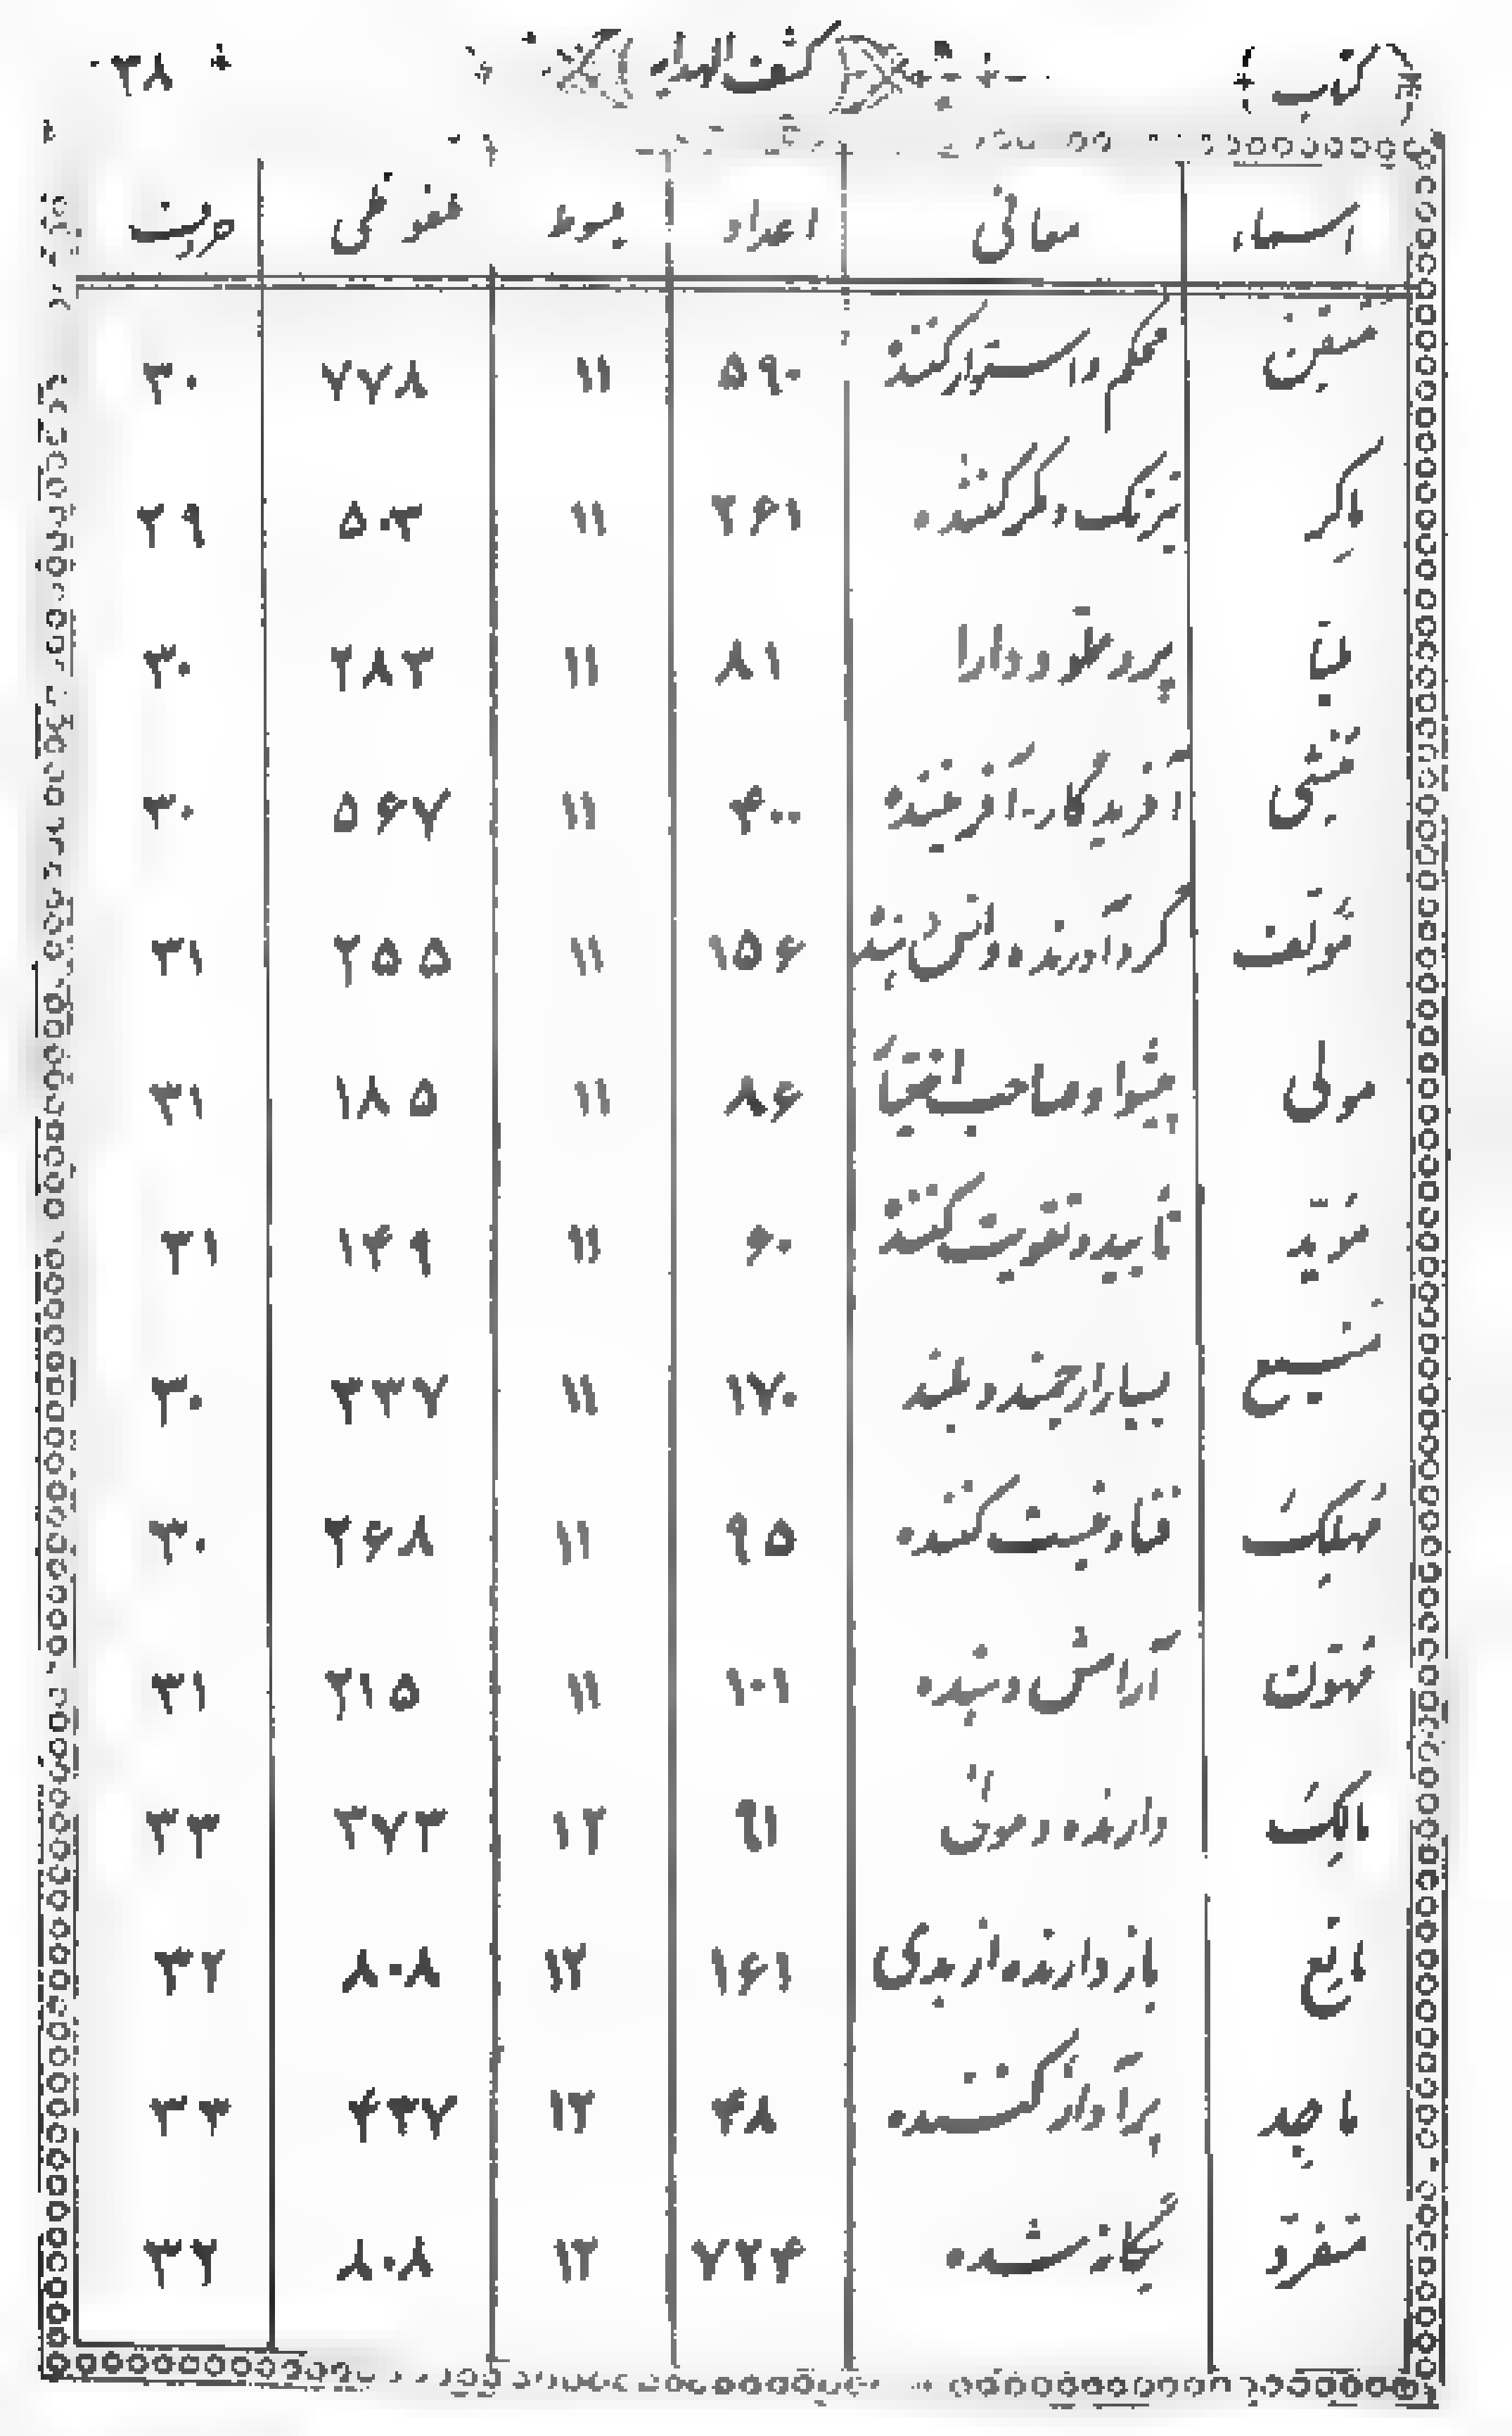 کتاب کشف الهدایه ۳۸
اسماء معانی اعداد مبسوط ملفوظی حروف
متقن محکم واستوار کننده ۵۹۰ ۱۱ ۷۷۸ ۳۰
ماکر نیرنک و مکر کننده ۲۶۱ ۱۱ ۵۰۳ ۲۹
۸۱ ۱۱ ۲۸۳ ۳۰
منشی آفریدگار-آفریننده ۴۰۰ ۱۱ ۵۶۷ ۳۰
مؤلف گردآورنده وانس دهنده ۱۵۶ ۱۱ ۲۵۵ ۳۱
مولی پیشوا وصاحب اختیار ۸۶ ۱۱ ۱۸۵ ۳۱
مؤید تأیید و تقویت کننده ۶۰ ۱۱ ۱۴۹ ۳۱
منیع بسیار ارجمند و بلند ۱۷۰ ۱۱ ۳۳۷ ۳۰
مهلک فنا و نیست کننده ۹۵ ۱۱ ۲۶۸ ۳۰
مهون آرامش دهنده ۱۰۱ ۱۱ ۲۱۵ ۳۱
مالک دارنده و مولی ۹۱ ۱۲ ۳۷۳ ۳۳
مانع باز دارنده از بدی ۱۶۱ ۱۲ ۸۰۸ ۳۲
ماجد پرآوازه کننده ۴۸ ۱۲ ۴۳۷ ۳۳
متفرد یگانه شده ۷۲۴ ۱۲ ۸۰۸ ۳۲